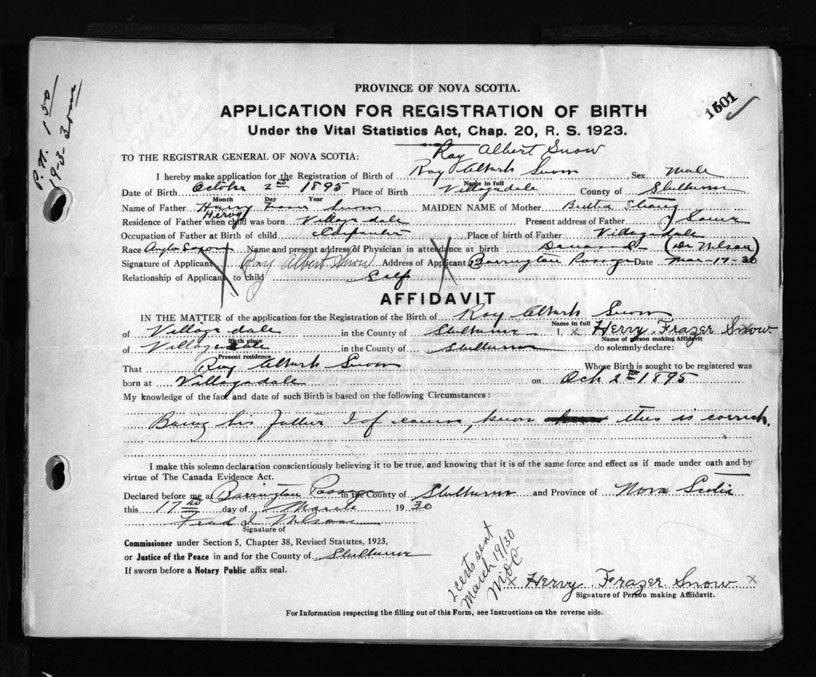 P.N. 1 50
19-3-30
1501
PROVINCE OF NOVA SCOTIA.
APPLICATION FOR REGISTRATION OF BIRTH
Under the Vital Statistics Act, Chap. 20, R. S. 1923.
Ray Albert Snow
TO THE REGISTRAR GENERAL OF NOVA SCOTIA:
I hereby make application for the Registration of Birth of Ray Albert Snow Sex Male
Name in full
Date of Birth October 2nd 1895 Place of Birth Villagedale County of Shelburne
Month Day Year
Name of Father Harry Snow MAIDEN NAME of Mother
Hervy
Residence of Father when child was born Villagedale Present address of Father Same
Occupation of Father at Birth of child Carpenter Place of birth of Father Villagedale
Race Anglo Saxon Name and present address of Physician in attendance at birth Deceased (Dr Wilson)
Signature of Applicant Ray Albert Snow Address of Applicant Barrington Passage Date Mar-17-30
Relationship of Applicant to child Self
AFFIDAVIT
IN THE MATTER of the application for the Registration of the Birth of Ray Albert Snow
Name in full
of Villagedale in the County of Shelburne I, x Hervy Frazer Snow
Birth place Name of person making Affidavit
of Villagedale in the County of Shelburne do solemnly declare:
Present residence
That Ray Albert Snow Whose Birth is sought to be registered was
born at Villagedale on Oct 2nd 1895
My knowledge of the fact and date of such Birth is based on the following Circumstances:
Being his father I of course, know this is correct.
I make this solemn declaration conscientiously believing it to be true, and knowing that it is of the same force and effect as if made under oath and by
virtue of The Canada Evidence Act.
Declared before me at Barrington Passage in the County of Shelburne and Province of Nova Scotia
this 17th day of March 19 30
Signature of
Commissioner under Section 5, Chapter 38, Revised Statutes, 1923,
or Justice of the Peace in and for the County of Shelburne
If sworn before a Notary Public affix seal.
2 certs sent
March 19/30
Hervy Frazer Snow x
Signature of Person making Affidavit.
For Information respecting the filling out of this Form, see Instructions on the reverse side.